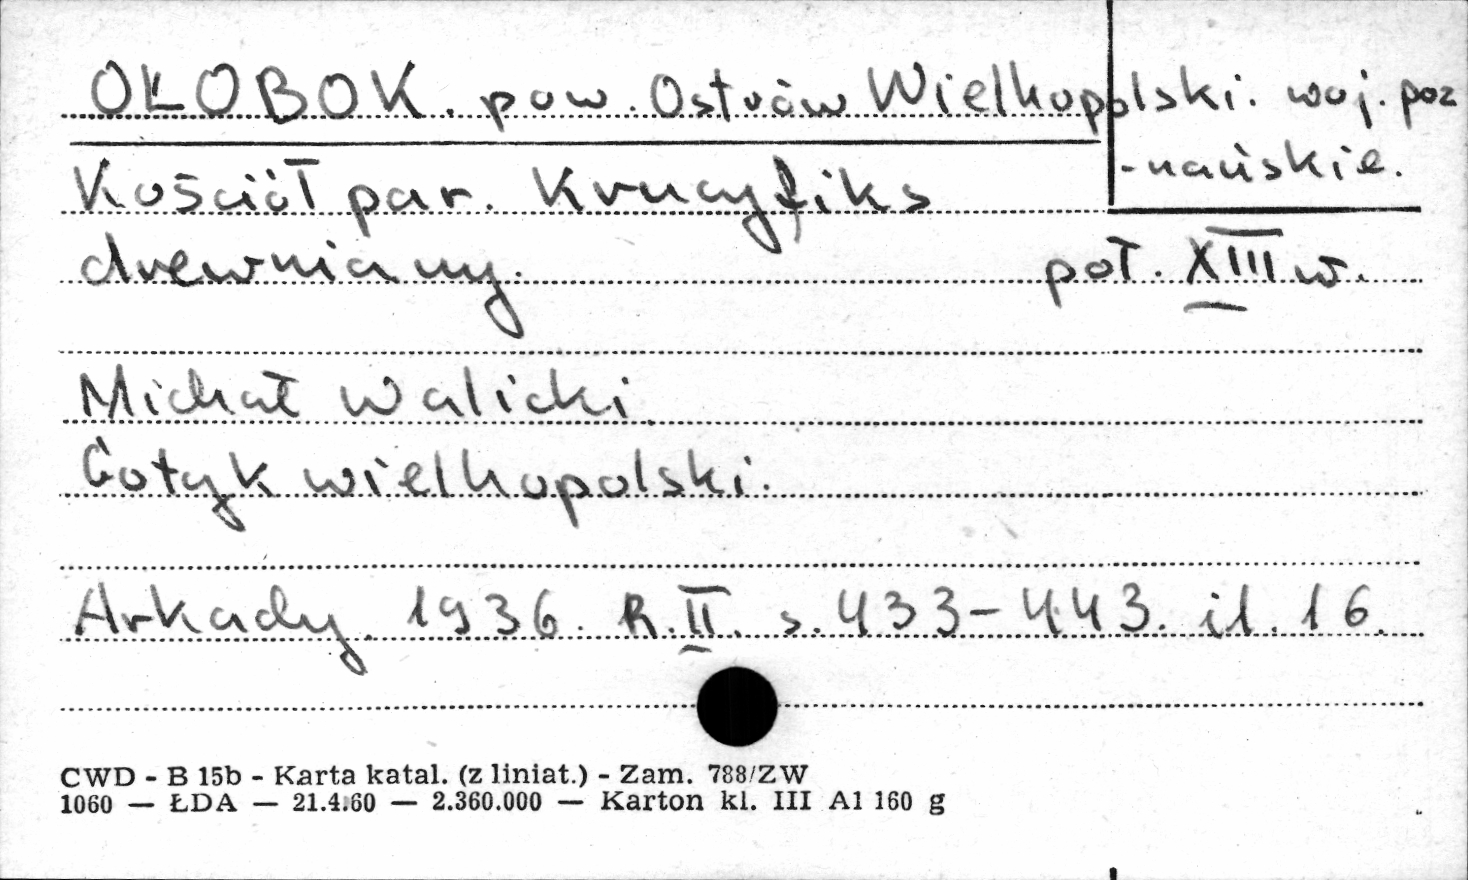 OŁOBOK. pow. Ostrów Wielkopolski. woj. poz
-nańskie.
Kościół par. Krucyfiks
drewniany. poł. XIII w.
Michał Walicki.
Gotyk wielkopolski.
Arkady. 1936. R. II. s. 433-443. il. 16.
CWD - B 15b - Karta katal. (z liniat.) - Zam. 788/ZW
1060 — ŁDA — 21.4.60 — 2.360.000 — Karton kl. III A1 160 g